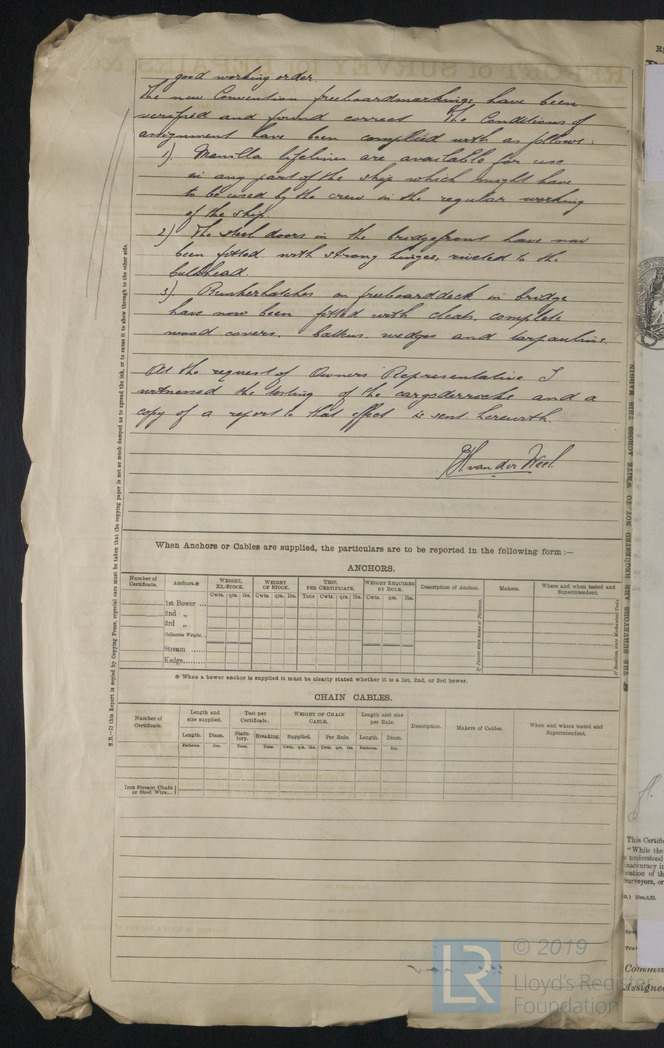 good working order.
The new Convention freeboardmarkings have been
verified and found correct. The Conditions of
assignment have been complied with as follows:
1). Manilla lifelines are available for use
in any part of the ship which might have
to be used by the crew in the regular working
of the ship.
2) The steel doors in the bridgefront have now
been fitted with strong hinges, riveted to the
bulkhead.
3). Bunkerhatches on freeboarddeck in bridge
have now been fitted with cleats, complete
wood covers, battens, wedges and tarpaulins.
At the request of Owners Representative I
witnessed the testing of the cargoderricks and a
copy of a report to that effect is sent herewith.
van der Weel
When Anchors or Cables are supplied, the particulars are to be reported in the following form :—
ANCHORS.
Number of Certificate. Anchors.※ WEIGHT, EX-STOCK. WEIGHT OF STOCK. TEST, PER CERTIFICATE. WEIGHT REQUIRED BY RULE. Description of Anchor. Makers. Where and when tested and Superintendent.
Cwts. qrs. lbs. Cwts. qrs. lbs. Tons Cwts. qrs. lbs. Cwts. qrs. lbs.
1st Bower ...
2nd „
3rd „
Collective Weight.
Stream ......
Kedge........
※ When a bower anchor is supplied it must be clearly stated whether it is a 1st, 2nd, or 3rd bower.
CHAIN CABLES.
Number of Certificate. Length and size supplied. Test per Certificate. WEIGHT OF CHAIN CABLE. Length and size per Rule. Description. Makers of Cables. When and where tested and Superintendent.
Length. Diam. Statutory. Breaking. Supplied. Per Rule. Length. Diam.
Fathoms. Ins. Tons. Tons. Cwts. qrs. lbs. Cwts. qrs. lbs. Fathoms. Ins.
Iron Stream Chain or Steel Wire...
N.B.—If this Report is copied by Copying Press, especial care must be taken that the copying paper is not so much damped as to spread the ink, or to cause it to show through to the other side.
THE SURVEYORS ARE REQUESTED NOT TO WRITE ACROSS THIS MARGIN.
This Certifi
"While the
understood
naccuracy in
ication of th
urveyors, or
Assigned
LR
© 2019
Lloyd's Register
Foundation